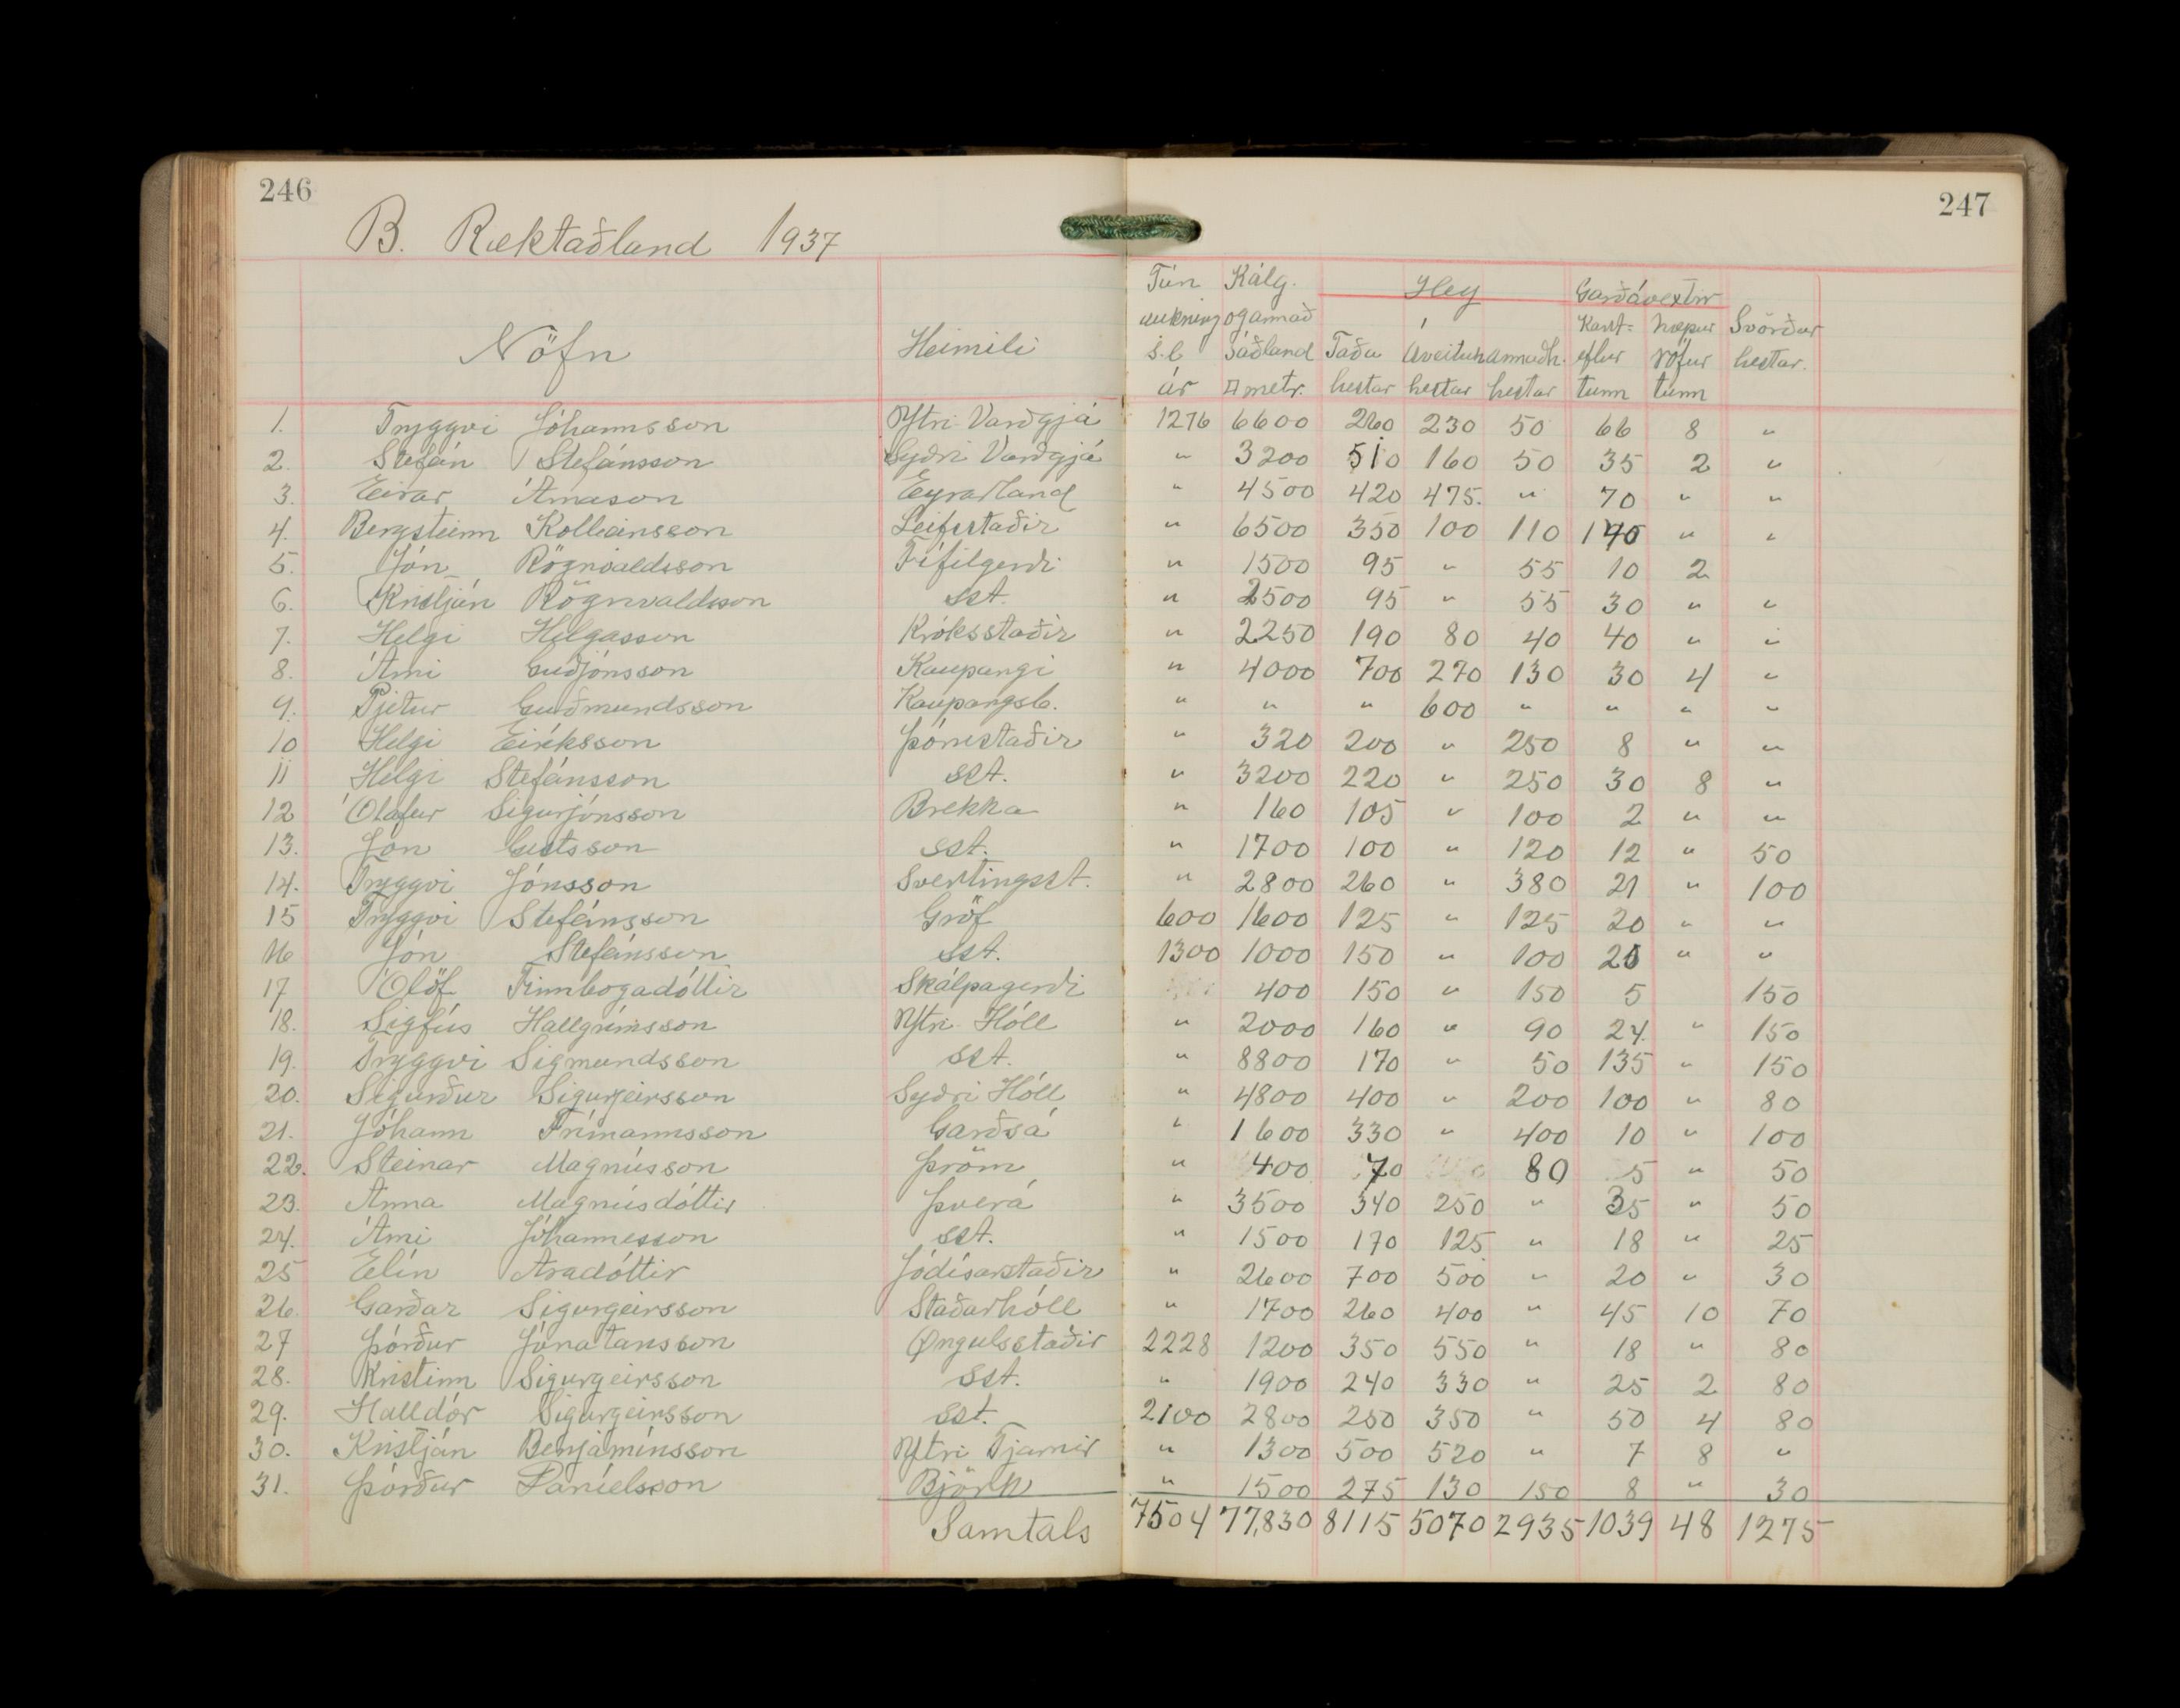 246
247
B. Ræktaðland 1937
Nöfn Heimili
Tún Kálg. Hey Garðávextir
aukning og annað Kart- næpur Svörður
s.l. sáðland Taða áveituh annaðh. eflur rófur hestar.
ár □ metr. hestar hestar hestar tunn tunn
1. Tryggvi Jóhannsson Ytri Varðgjá 1276 6600 260 230 50 66 8 "
2. Stefán Stefánsson Syðri Varðgjá " 3200 510 160 50 35 2 "
3. Einar Árnason Eyrarland " 4500 420 475. " 70 " "
4. Bergsteinn Kolbeinsson Leifsstaðir " 6500 350 100 110 140 " "
5. Jón Rögnvaldsson Fífilgerði " 1500 95 " 55 10 2
6. Kristján Rögnvaldsson sst. " 2500 95 " 55 30 " "
7. Helgi Helgasson Króksstaðir " 2250 190 80 40 40 " "
8. Árni Guðjónsson Kaupangi " 4000 700 270 130 30 4 "
9. Pjetur Guðmundsson Kaupangsb. " " " 600 " " " "
10 Helgi Eiríksson Þórustaðir " 320 200 " 250 8 " "
11 Helgi Stefánsson sst. " 3200 220 " 250 30 8 "
12 Ólafur Sigurjónsson Brekka " 160 105 " 100 2 " "
13. Jón Gustsson sst. " 1700 100 " 120 12 " 50
14. Tryggvi Jónsson Svertingsst. " 2800 260 " 380 21 " 100
15 Tryggvi Stefánsson Gröf 600 1600 125 " 125 20 " "
16 Jón Stefánsson sst. 1300 1000 150 " 100 20 " "
17 Ólöf Finnbogadóttir Skálpagerði 400 150 " 150 5 150
18. Sigfús Hallgrímsson Ytri Hóll " 2000 160 " 90 24. " 150
19. Tryggvi Sigmundsson sst. " 8800 170 " 50 135 " 150
20. Sigurður Sigurgeirsson Syðri Hóll " 4800 400 " 200 100 " 80
21. Jóhann Frímannsson Garðsá " 1600 330 " 400 10 " 100
22. Steinar Magnússon Þröm " 400 70 80 5 " 50
23. Anna Magnúsdóttir Þverá " 3500 340 250 " 35 " 50
24. Árni Jóhannesson sst. " 1500 170 125 " 18 " 25
25 Elín Aradóttir Jódísarstaðir " 2600 700 500 " 20 " 30
26. Garðar Sigurgeirsson Staðarhóll " 1700 260 400 " 45 10 70
27 Þórður Jónatansson Öngulsstaðir 2228 1200 350 550 " 18 " 80
28. Kristinn Sigurgeirsson sst. " 1900 240 330 " 25 2 80
29. Halldór Sigurgeirsson sst. 2100 2800 250 350 " 50 4 80
30. Kristján Benjamínsson Ytri Tjarnir " 1300 500 520 " 7 8 "
31. Þórður Daníelsson Björk " 1500 275 130 150 8 " 30
Samtals 7504 77,830 8115 5070 2935 1039 48 1275